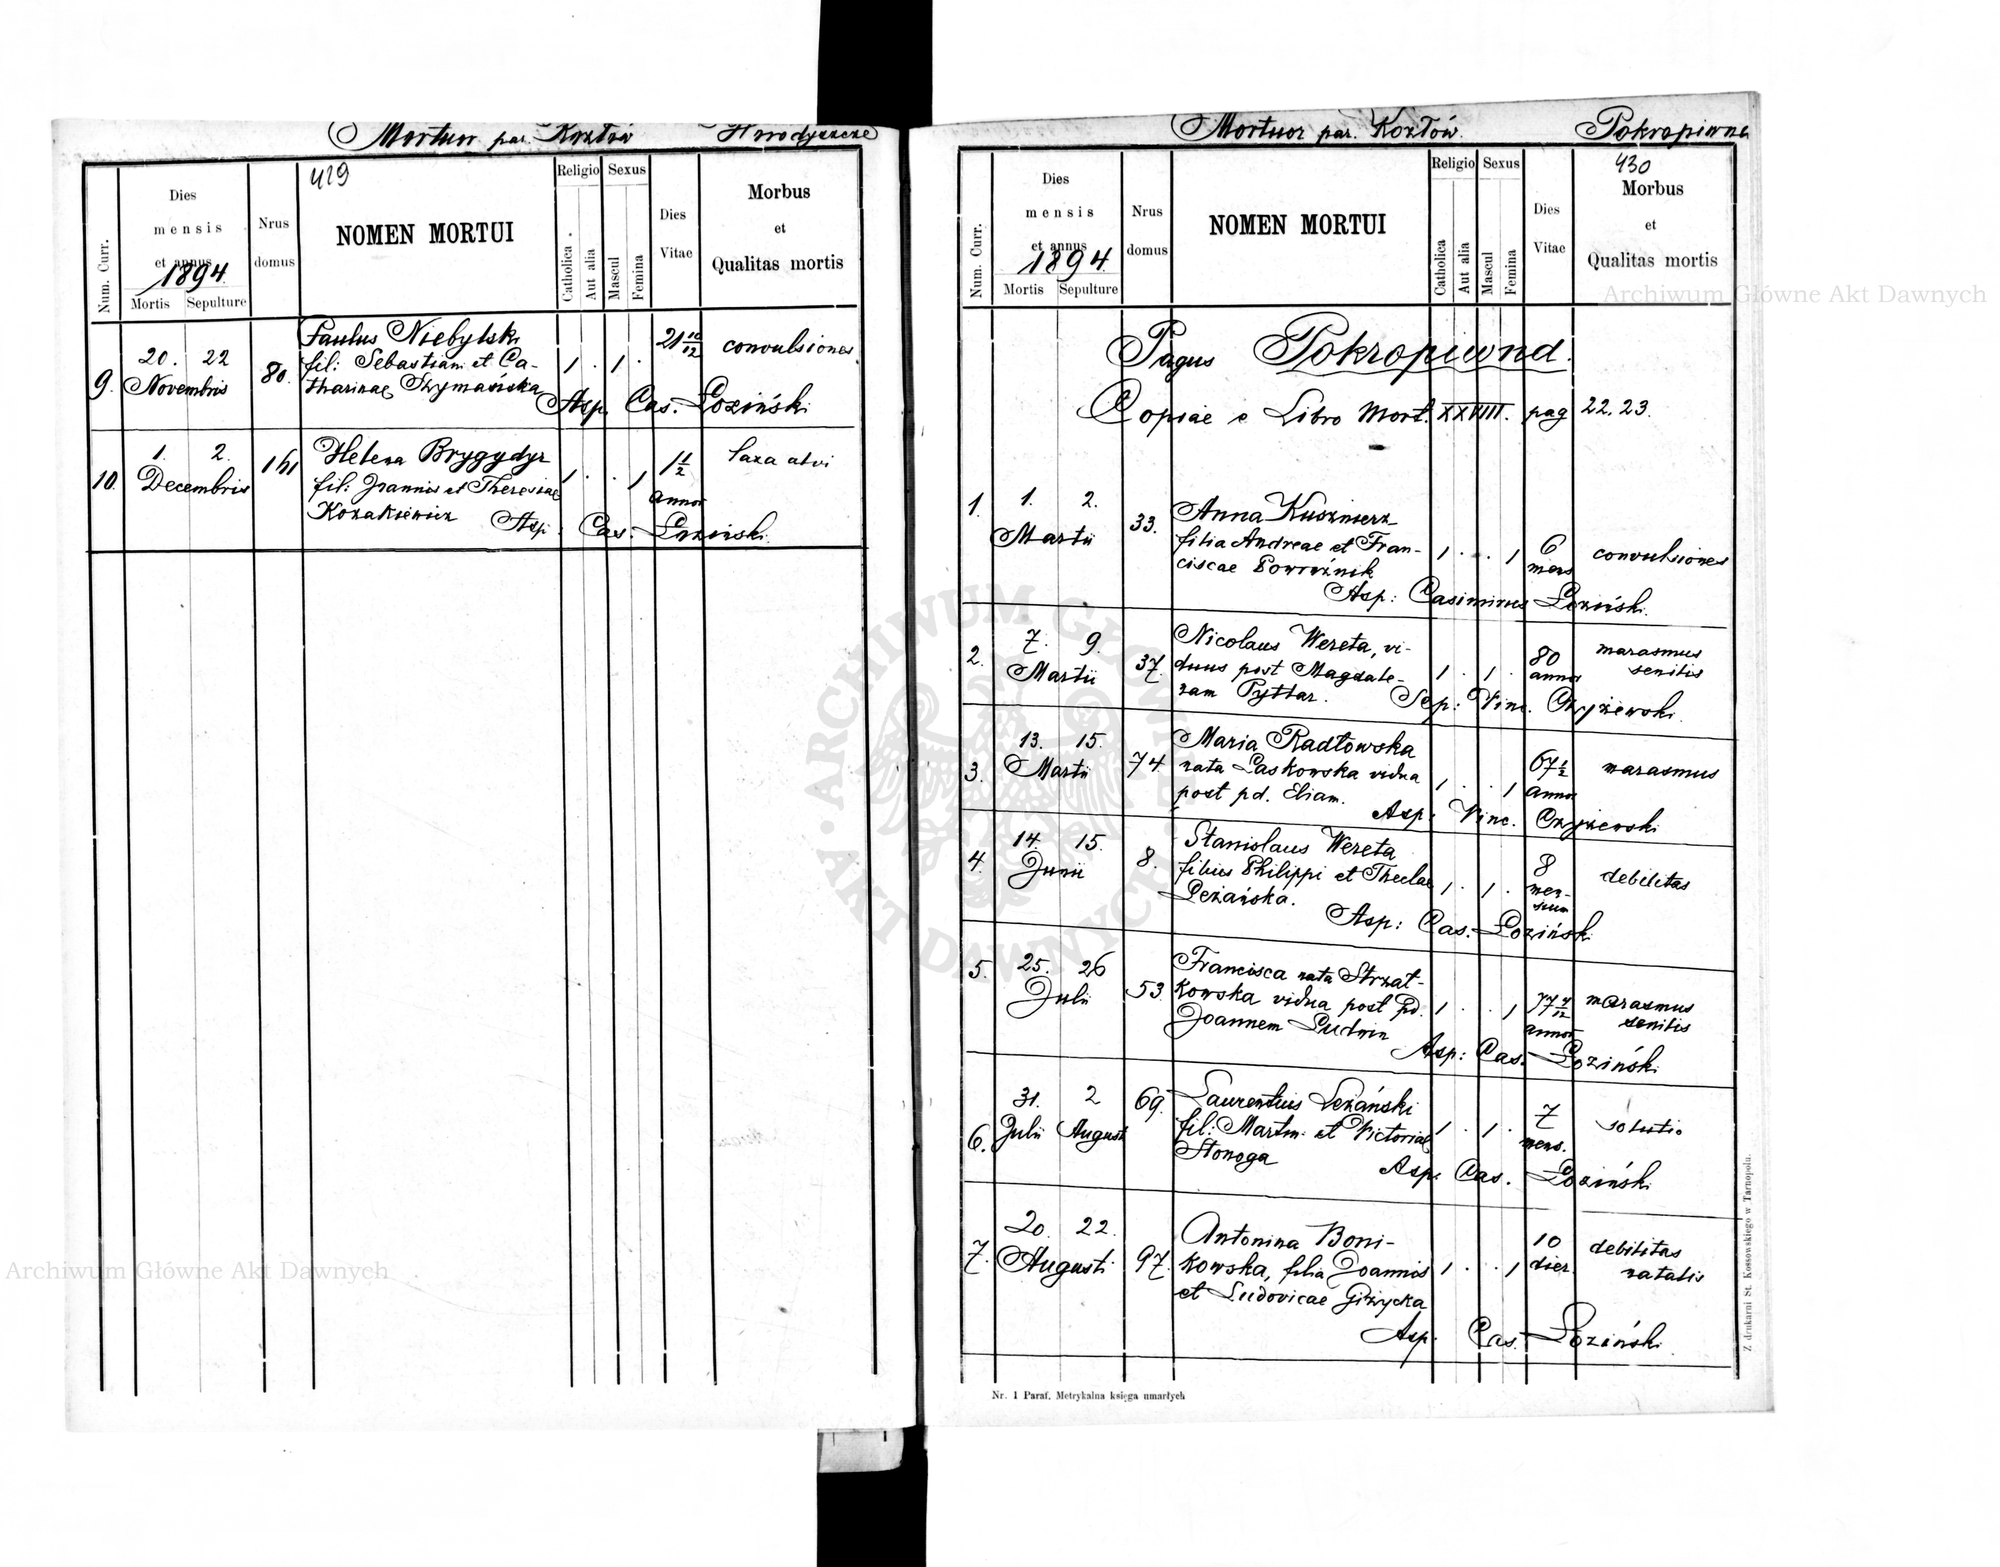 Mortuor par. Kozłów Horodyszcze
419
Num. Curr.
Dies
mensis
et annus
1894.
Mortis Sepulture
Nrus
domus
NOMEN MORTUI
Religio Sexus
Catholica
Aut alia
Mascul
Femina
Dies
Vitae
Morbus
et
Qualitas mortis
9. 20. 22
Novembris
80.
Paulus Niebylski
fil: Sebastiani et Ca-
tharinae Szymańska
1 . 1 .
21 10/12
convulsiones.
Asp. Cas. Łoziński
10. 1. 2.
Decembris
161
Helena Brygydyr
fil: Joannis et Theresiae
Kozakiewicz
1 . . 1
1 1/2
annor
laxa alvi
Asp. Cas. Łoziński.
Mortuor par. Kozłów. Pokropiwna
430
Num. Curr.
Dies
mensis
et annus
1894.
Mortis Sepulture
Nrus
domus
NOMEN MORTUI
Religio Sexus
Catholica
Aut alia
Mascul
Femina
Dies
Vitae
Morbus
et
Qualitas mortis
Pagus Pokropiwna.
Copiae e Libro Mort. XXVIII. pag 22. 23.
1. 1. 2.
Martii
33.
Anna Kusznierz
filia Andreae et Fran-
ciscae Powroźnik
1 . . 1
6
mens
convulsiones
Asp: Casimirus Łoziński.
2. 7. 9.
Martii
37.
Nicolaus Wereta, vi-
duus post Magdale-
nam Pyttar.
1 . 1 .
80
annor
marasmus
senilis
Sep: Vinc. Czyżewski.
3. 13. 15.
Martii
74.
Maria Radłowska
nata Laskowska vidua
post pd. Eliam.
1 . . 1
67 1/2
annor
marasmus
Asp: Vinc. Czyżewski
4. 14. 15.
Junii
8.
Stanislaus Wereta
filius Philippi et Theclae
Leżańska.
1 . 1 .
8
men-
sium
debilitas
Asp: Cas. Łoziński
5. 25. 26
Julii
53.
Francisca nata Strzał-
kowska vidua post pd.
Joannem Ludwin
1 . . 1
77 7/12
annor
marasmus
senilis
Asp: Cas. Łoziński.
6. 31. 2
Julii Augusti
69.
Laurentius Leżański
fil: Martini et Victoriae
Stonoga
1 . 1 .
7
mens.
solutio
Asp. Cas. Łoziński.
7. 20. 22.
Augusti
97.
Antonina Boni-
kowska, filia Joannis
et Ludovicae Giżycka
1 . . 1
10
dier.
debilitas
natalis
Asp. Cas. Łoziński.
Nr. 1 Paraf. Metrykalna księga umarłych
Z drukarni St. Kossowskiego w Tarnopolu.
Archiwum Główne Akt Dawnych
Archiwum Główne Akt Dawnych
ARCHIWUM GŁÓWNE AKT DAWNYCH